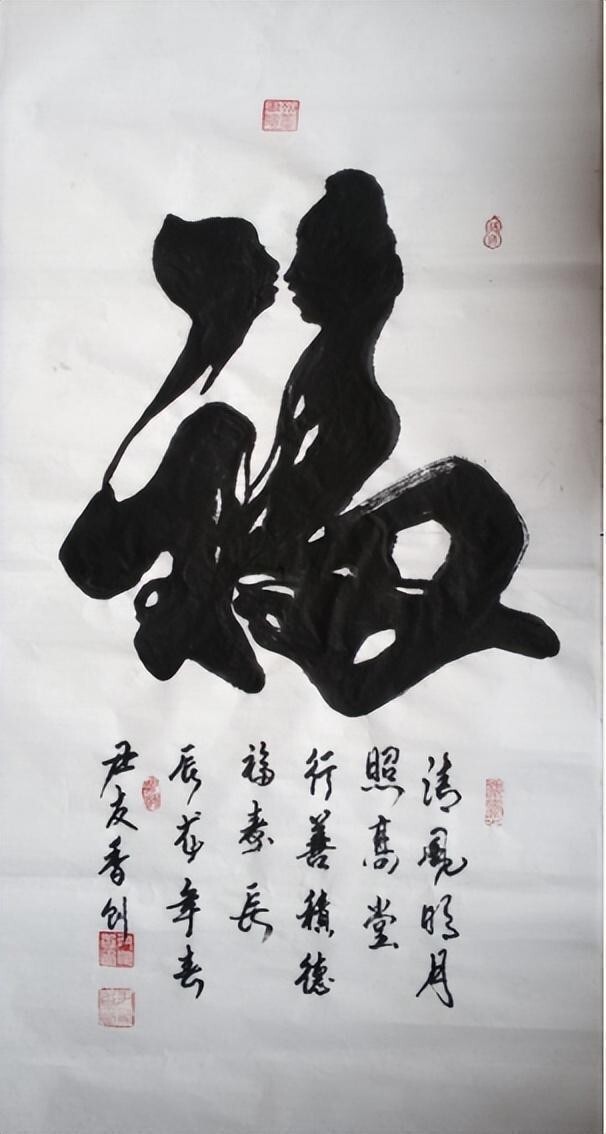 福
清風明月
照髙堂
行善積德
福寿長
辰龙年春
友香创